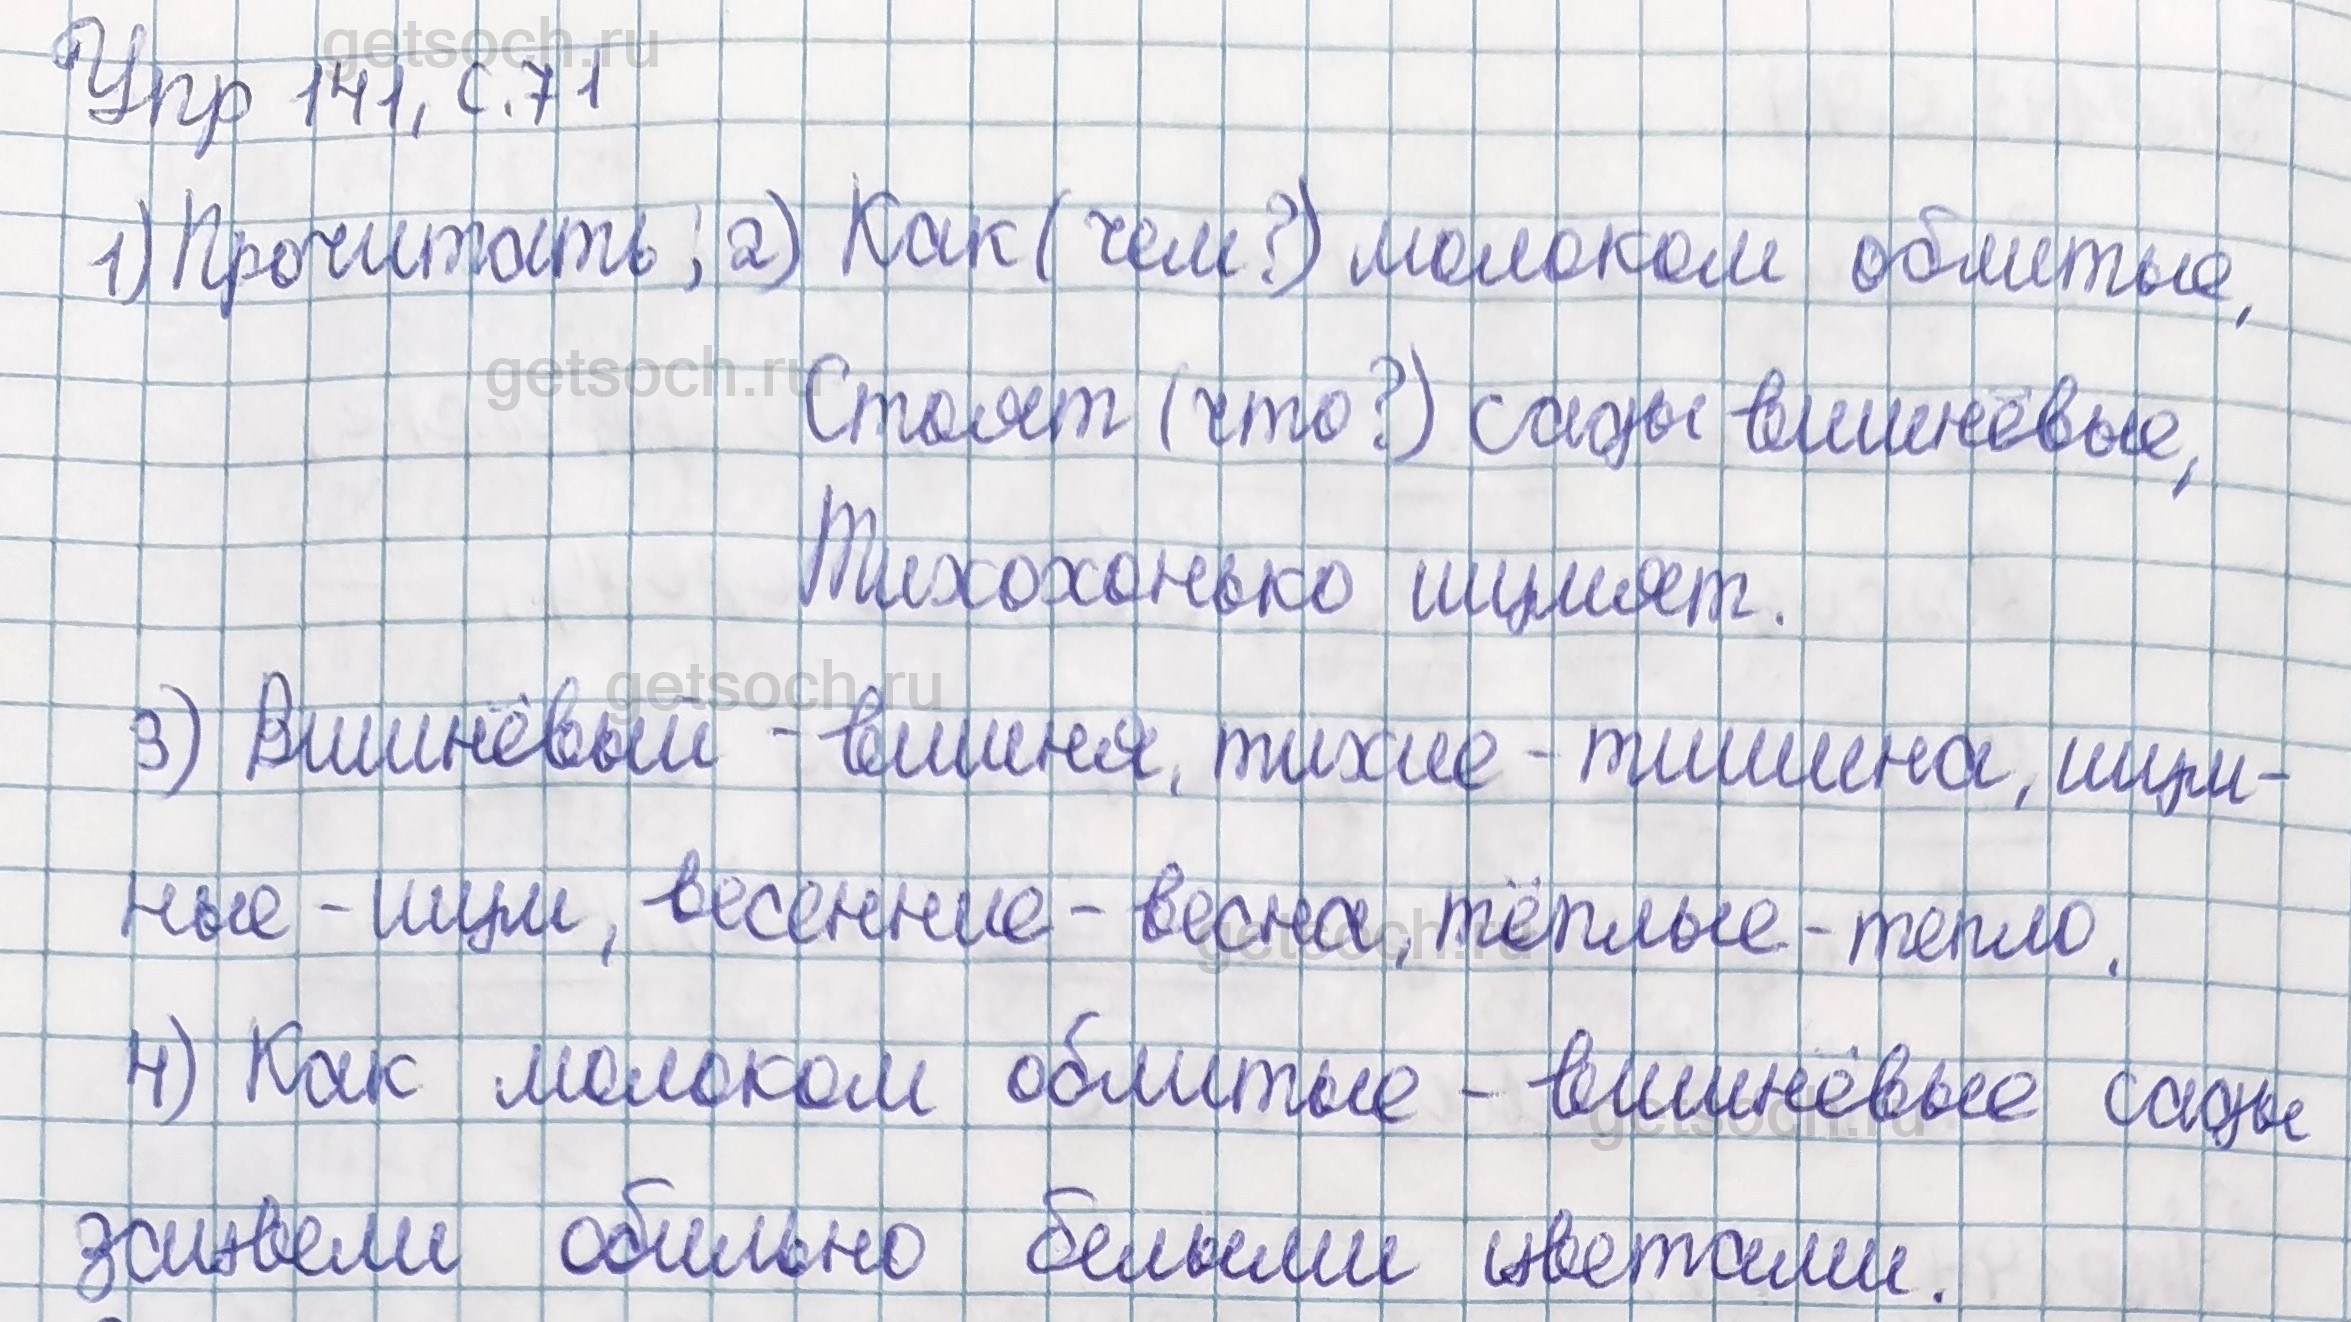 getsoch.ru
Упр 141, с.71
1) Прочитать; 2) Как (чем?) молоком облитые,
getsoch.ru
Стоят (что?) сады вишнёвые,
Тихохонько шумят.
getsoch.ru
3) Вишнёвый - вишня, тихие - тишина, шум-
ные - шум, весенние - весна, тёплые - тепло.
getsoch.ru
4) Как молоком облитые - вишнёвые сады
getsoch.ru
зацвели обильно белыми цветами.